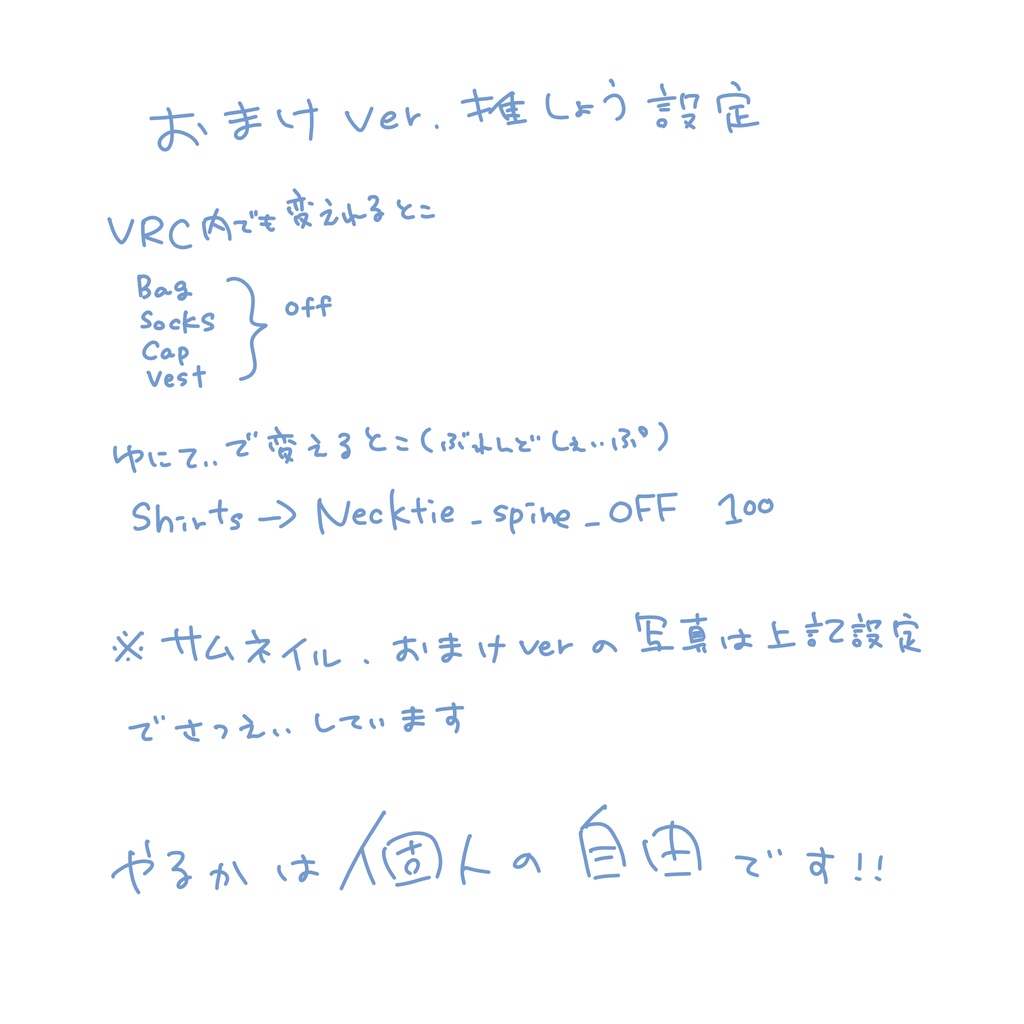 おまけver.推しょう設定
VRC内でも変えれるとこ
Bag
Socks
Cap
Vest
off
ゆにてぃで変えるとこ(ぶれんどしぇいぷ)
Shirts→Necktie_spine_OFF 100
※サムネイル.おまけverの写真は上記設定
でさつえいしています
やるかは個人の自由です!!